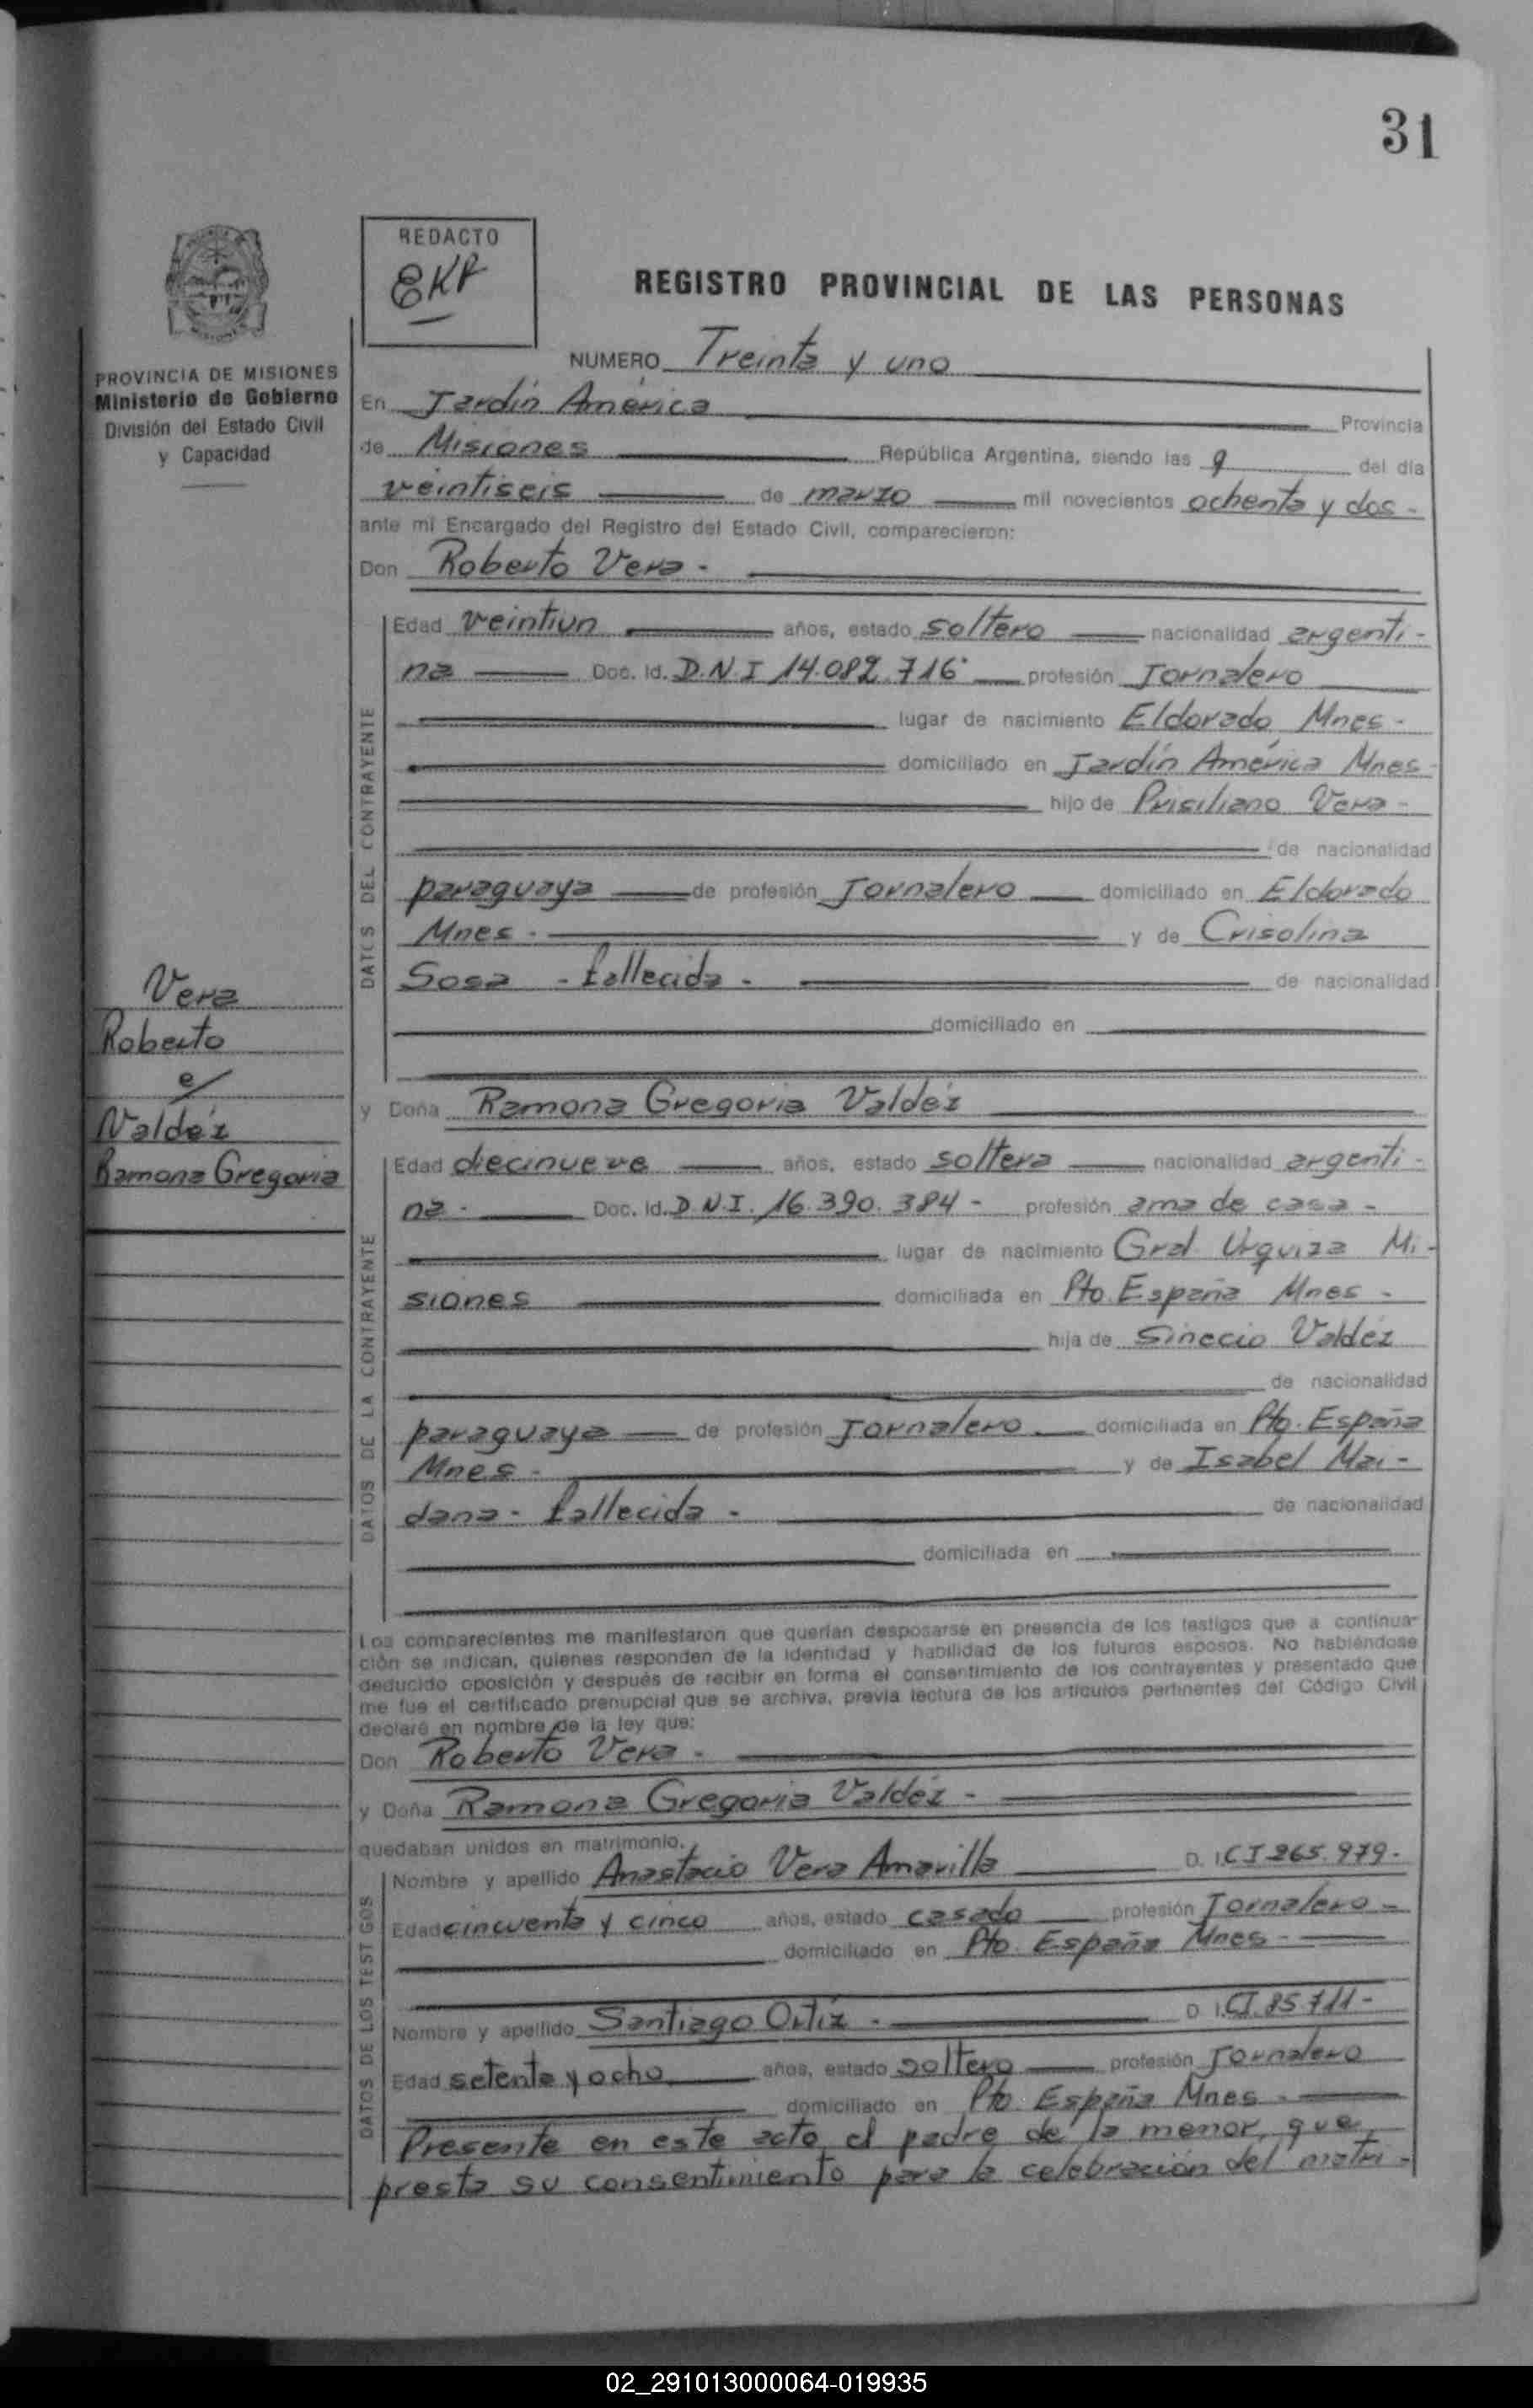 31
REDACTO
EKP
REGISTRO PROVINCIAL DE LAS PERSONAS
NUMERO Treinta y uno
PROVINCIA DE MISIONES
Ministerio de Gobierno
División del Estado Civil
y Capacidad
En Jardín América Provincia
de Misiones República Argentina, siendo las 9 del día
veintiseis de marzo mil novecientos ochenta y dos -
ante mi Encargado del Registro del Estado Civil, comparecieron:
Don Roberto Vera -
DATOS DEL CONTRAYENTE
Edad veintiun años, estado soltero nacionalidad argenti-
na Doc. Id. D.N.I 14.082.716 profesión Jornalero
lugar de nacimiento Eldorado Mnes -
domiciliado en Jardín América Mnes -
hijo de Prisiliano Vera -
de nacionalidad
paraguaya de profesión Jornalero domiciliado en Eldorado
Mnes - y de Crisolina
Sosa - fallecida - de nacionalidad
domiciliado en
Vera
Roberto
c/
Valdéz
Ramona Gregoria
y Doña Ramona Gregoria Valdéz
DATOS DE LA CONTRAYENTE
Edad diecinueve años, estado soltera nacionalidad argenti-
na - Doc. Id. D.N.I. 16.390.384 - profesión ama de casa -
lugar de nacimiento Gral. Urquiza Mi-
siones domiciliada en Pto. España Mnes -
hija de Sinecio Valdéz
de nacionalidad
paraguaya de profesión Jornalero domiciliada en Pto. España
Mnes - y de Isabel Mai-
dana - fallecida - de nacionalidad
domiciliada en
Los comparecientes me manifestaron que querían desposarse en presencia de los testigos que a continua-
ción se indican, quienes responden de la identidad y habilidad de los futuros esposos. No habiéndose
deducido oposición y después de recibir en forma el consentimiento de los contrayentes y presentado que
me fue el certificado prenupcial que se archiva, previa lectura de los artículos pertinentes del Código Civil
declaré en nombre de la ley que:
Don Roberto Vera -
y Doña Ramona Gregoria Valdéz -
quedaban unidos en matrimonio.
DATOS DE LOS TESTIGOS
Nombre y apellido Anastacio Vera Amarilla D. I. CI 265.979 -
Edad cincuenta y cinco años, estado casado profesión Jornalero -
domiciliado en Pto. España Mnes -
Nombre y apellido Santiago Ortíz - D. I. CI. 85.711 -
Edad setenta y ocho años, estado soltero profesión Jornalero
domiciliado en Pto. España Mnes -
Presente en este acto, el padre de la menor, que
presta su consentimiento para la celebración del matri-
02_291013000064-019935